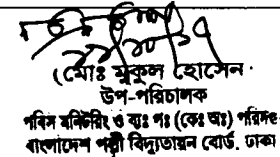 (মোঃ মুকুল হোসেন)
উপ-পরিচালক
পবিস মনিটরিং ও ব্যঃ পঃ (কেঃ অঃ) পরিদপ্তর
বাংলাদেশ পল্লী বিদ্যুতায়ন বোর্ড, ঢাকা